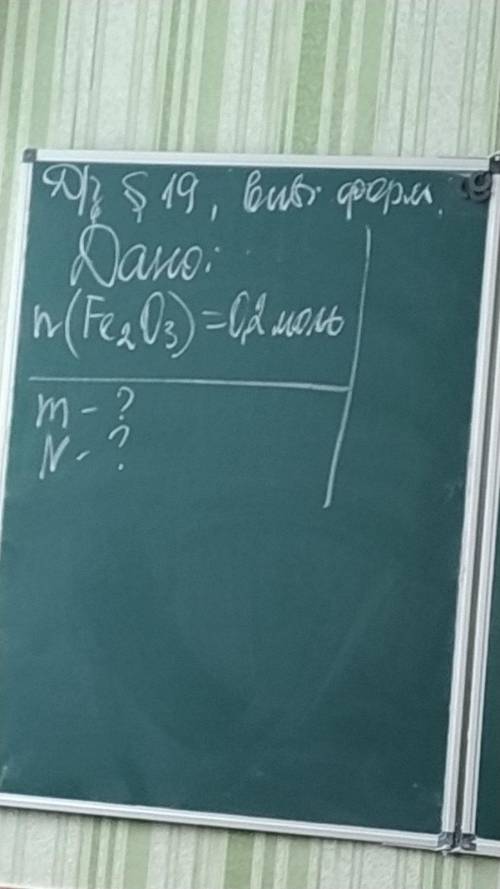 Д/з § 19, вивч форм.
Дано:
n(Fe₂O₃) = 0,2 моль
m - ?
N - ?